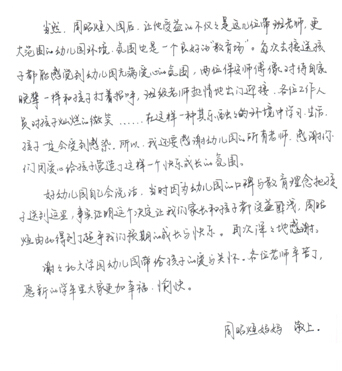 当然，周昭煊入园后，让他受益的不仅仅是这几位带班老师，更
大范围的幼儿园环境、氛围也是一个良好的"教育场"。每次去接送孩
子都能感觉到幼儿园充满爱心的氛围，两位保安师傅像对待自家
晚辈一样和孩子打着招呼，班级老师热情地出门迎接，各位工作人
员对孩子灿烂的微笑……在这样一种其乐融融的环境中学习、生活，
孩子一定会受到感染。所以，我还要感谢幼儿园的所有老师，感谢你
们用爱心给孩子营造了这样一个快乐成长的氛围。
好幼儿园自己会说话，当时因为幼儿园的口碑与教育理念把孩
子送到这里，事实证明这个决定让我们家长和孩子都受益匪浅，周昭
煊由此得到了超乎我们预期的成长与快乐。再次深深地感谢。
谢谢北大学园幼儿园带给孩子的爱与关怀。各位老师辛苦了，
愿新的学年里大家更加幸福、愉快。
周昭煊妈妈 敬上.